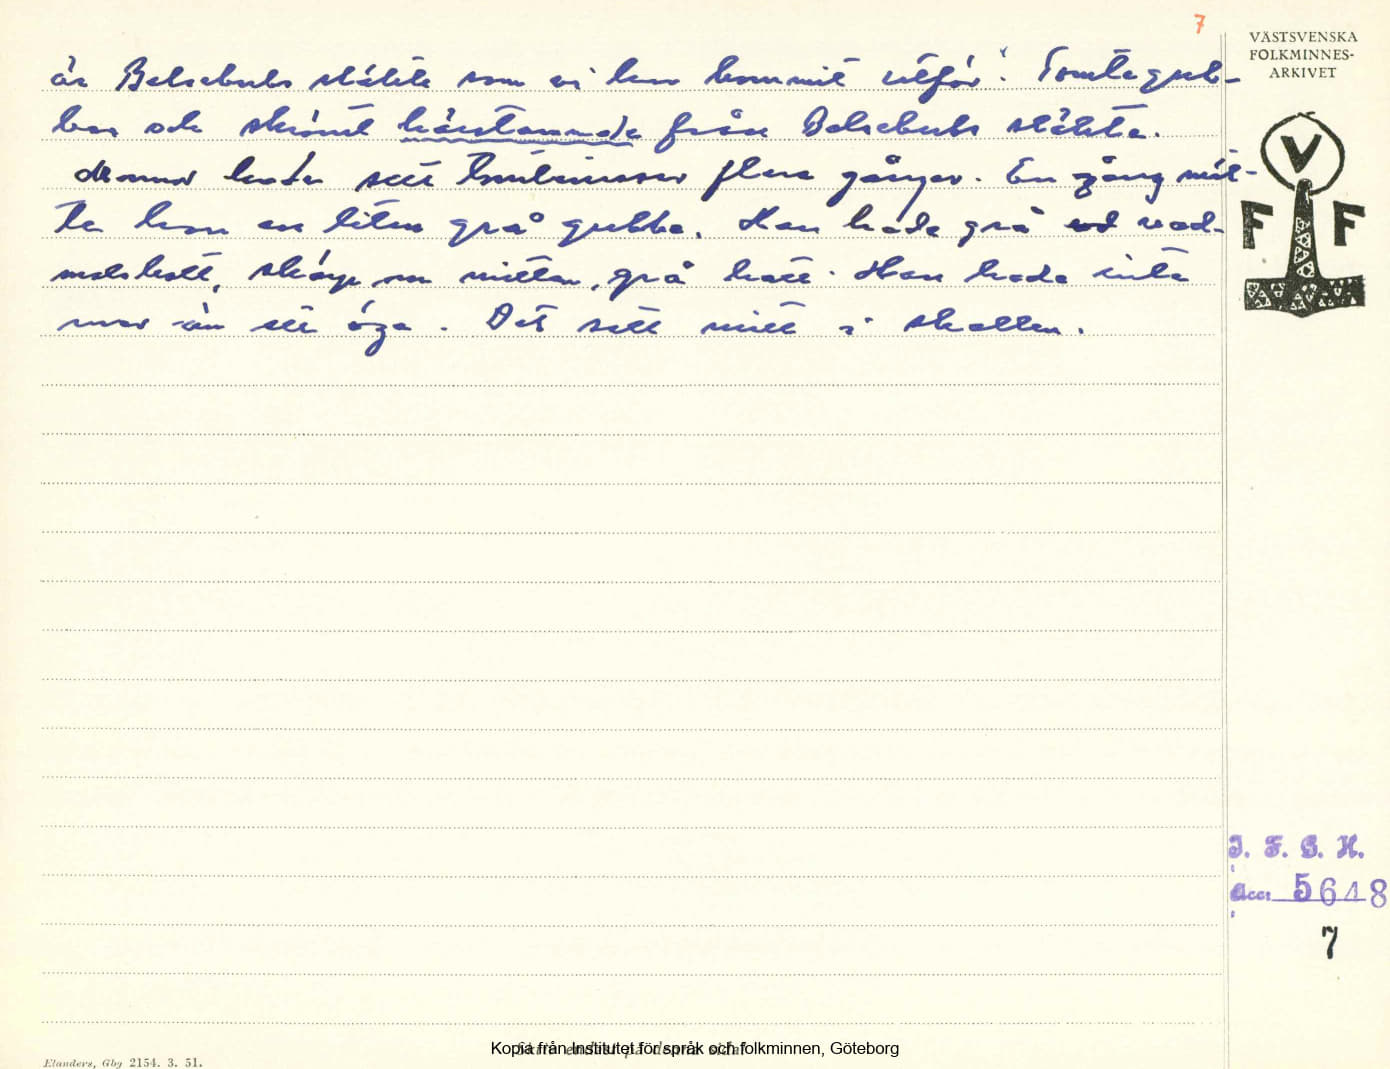 7
VÄSTSVENSKA
FOLKMINNES-
ARKIVET
är Belsebubs släkte som vi har kommit utför". Tomtegub-
ben och skrömt härstammade från Belsebubs släkte.
mor hade sett tomtenissar flera gånger. En gång möt-
te hon en liten grå gubbe. Han hade grå vad-
malskott, skärp om mitten, grå hatt. Han hade inte
mer än ett öga. Det satt mitt i skallen.
V
F F
I. F. G. H.
Acc: 5648
7
Elanders, Gbg 2154. 3. 51.
Kopia från Institutet för språk och folkminnen, Göteborg